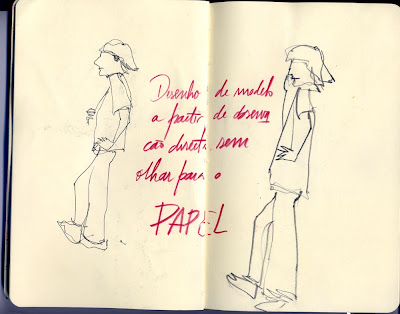 Desenho de modelo
a partir de observa
cão directa, sem
olhar para o
PAPEL